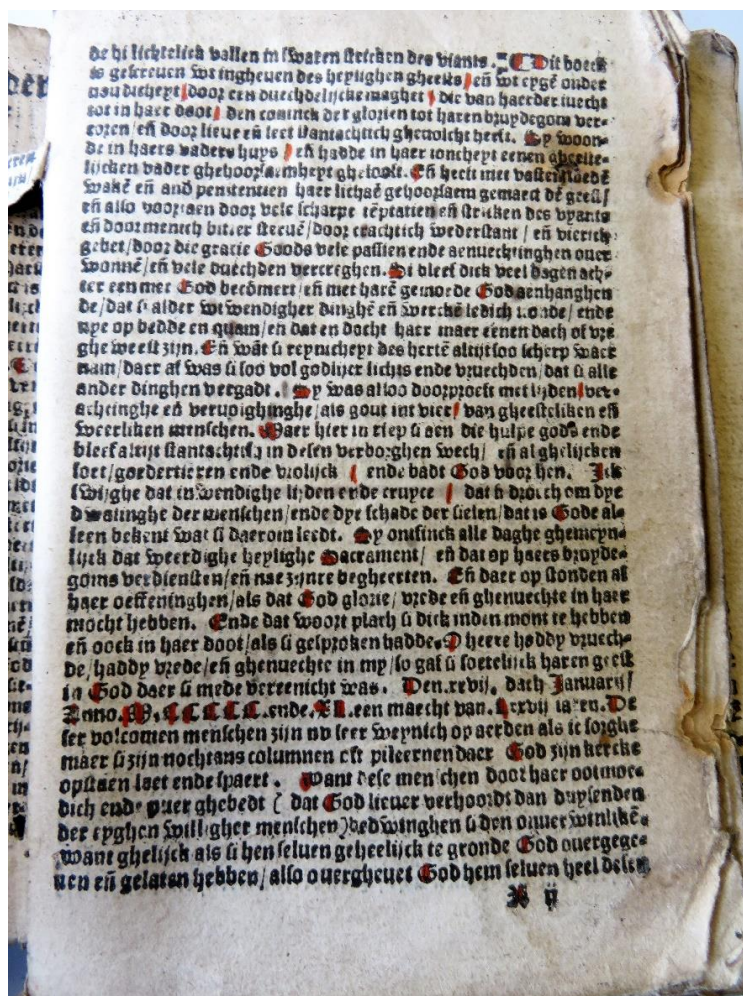 de hi lichtelick vallen in swaren stricken des viants. Dit boeck
is gescreuen wt ingheuen des heylighen gheests/ eñ wt eygē onder
uindicheyt/door een duechdelijcke maghet/ die van haerder iuecht
tot in haer doot/ den coninck der glorien tot haren bruydegom ver-
coren/eñ door lieue eñ leet stantachtich gheuolcht heeft. Sy woon-
de in haers vaders huys/ eñ hadde in haer ioncheyt eenen gheeste-
lijcken vader ghehoorsaemheyt gheloeft. Eñ heeft met vastē
wakē eñ and penitentien haer lichaē gehoorsaem gemaect dē geest/
eñ also voortaen door vele scharpe tēptatien eñ stricken des vyants
eñ door menich bitter steruē/door crachtich wederstant/ eñ vierich
gebet/door die gracie Goods vele passien ende aenuechtinghen ouer
wonnē/eñ vele duechden vercreghen. Si bleef dick veel dagen ach-
ter een met God becōmert/eñ met harē gemoede God aenhanghen
de/dat si alder wtwendigher dinghē eñ werckē ledich stonde/ ende
nye op bedde en quam/en dat en docht haer maer eenen dach oft vre
gheweest zijn. Eñ wāt si reynicheyt des hertē altijt soo scherp waer
nam/daer af was si soo vol godlijcr lichts ende vruechden/dat si alle
ander dinghen vergadt. Sy was alsoo doorproeft met lijden/ver-
achtinghe eñ veruolghinghe/als gout int vier/ van gheesteliken eñ
weerliken menschen. Maer hier in riep si aen die hulpe gods ende
bleef altijt stantachtich in desen verborghen wech/ eñ al ghelijcken
soet/goedertieren ende vrolijck/ ende badt God voor hen. Ick
swijghe dat inwendighe lijden ende cruyce/ dat si droech om dye
dwalinghe der menschen/ende dye schade der sielen/dat is Gode al-
leen bekent wat si daerom leedt. Sy ontfinck alle daghe ghemeyn-
lijck dat weerdighe heylighe Sacrament/ eñ dat op haers bruyde-
goms verdiensten/eñ nae zijnre begheerten. Eñ daer op stonden al
haer oeffeninghen/als dat God glorie/ vrede eñ ghenuechte in haer
mocht hebben. Ende dat woort plach si dick inden mont te hebben
eñ oock in haer doot/als si gesproken hadde. O heere hebdy vruech-
de/hebdy vrede/eñ ghenuechte in my/so gaf si soetelijck haren geest
in God daer si mede vereenicht was. Den.xxviij. dach January/
Anno.M.CCCCC.ende.XL.een maecht van.lxxvij iaren. De
ser volcomen menschen zijn nv seer weynich op aerden als ic sorghe
maer si zijn nochtans columnen oft pileernen daer God zijn kercke
op staen laet ende spaert. Want dese menschen door haer ootmoe-
dich ende puer ghebedt ( dat God lieuer verhoordt dan duysenden
der eyghen willigher menschen) bedwinghen si den onuerwinlikē.
want ghelijck als si hen seluen geheelijck te gronde God ouergege-
uen eñ gelaten hebben/ also ouergheuet God hem seluen heel desen
X ij